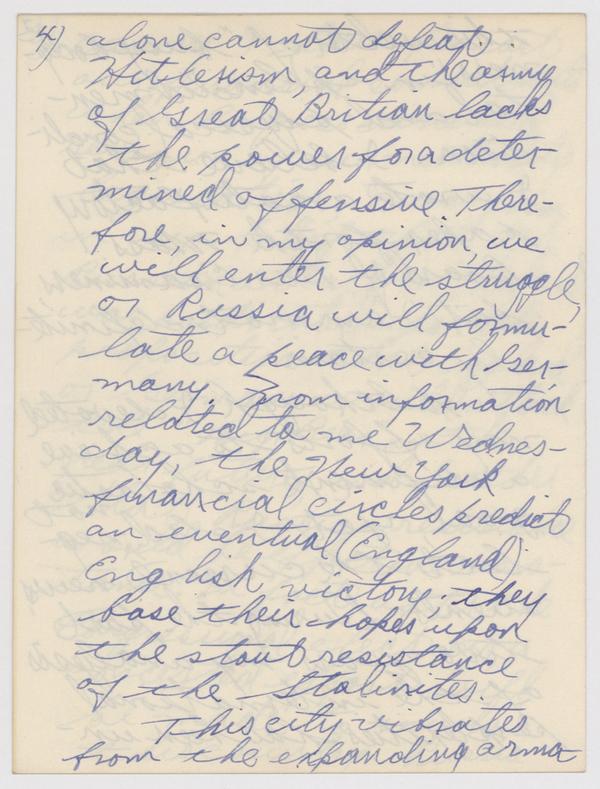 4) alone cannot defeat
Hitlerism, and the army
of Great Britian lacks
the power for a deter-
mined offensive. There-
fore, in my opinion, we
will enter the struggle,
or Russia will formu-
late a peace with Ger-
many. From information
related to me Wednes-
day, the New York
financial circles predict
an eventual (England)
English victory; they
base their hopes upon
the stout resistance
of the Stalinites.
This city vibrates
from the expanding arma-